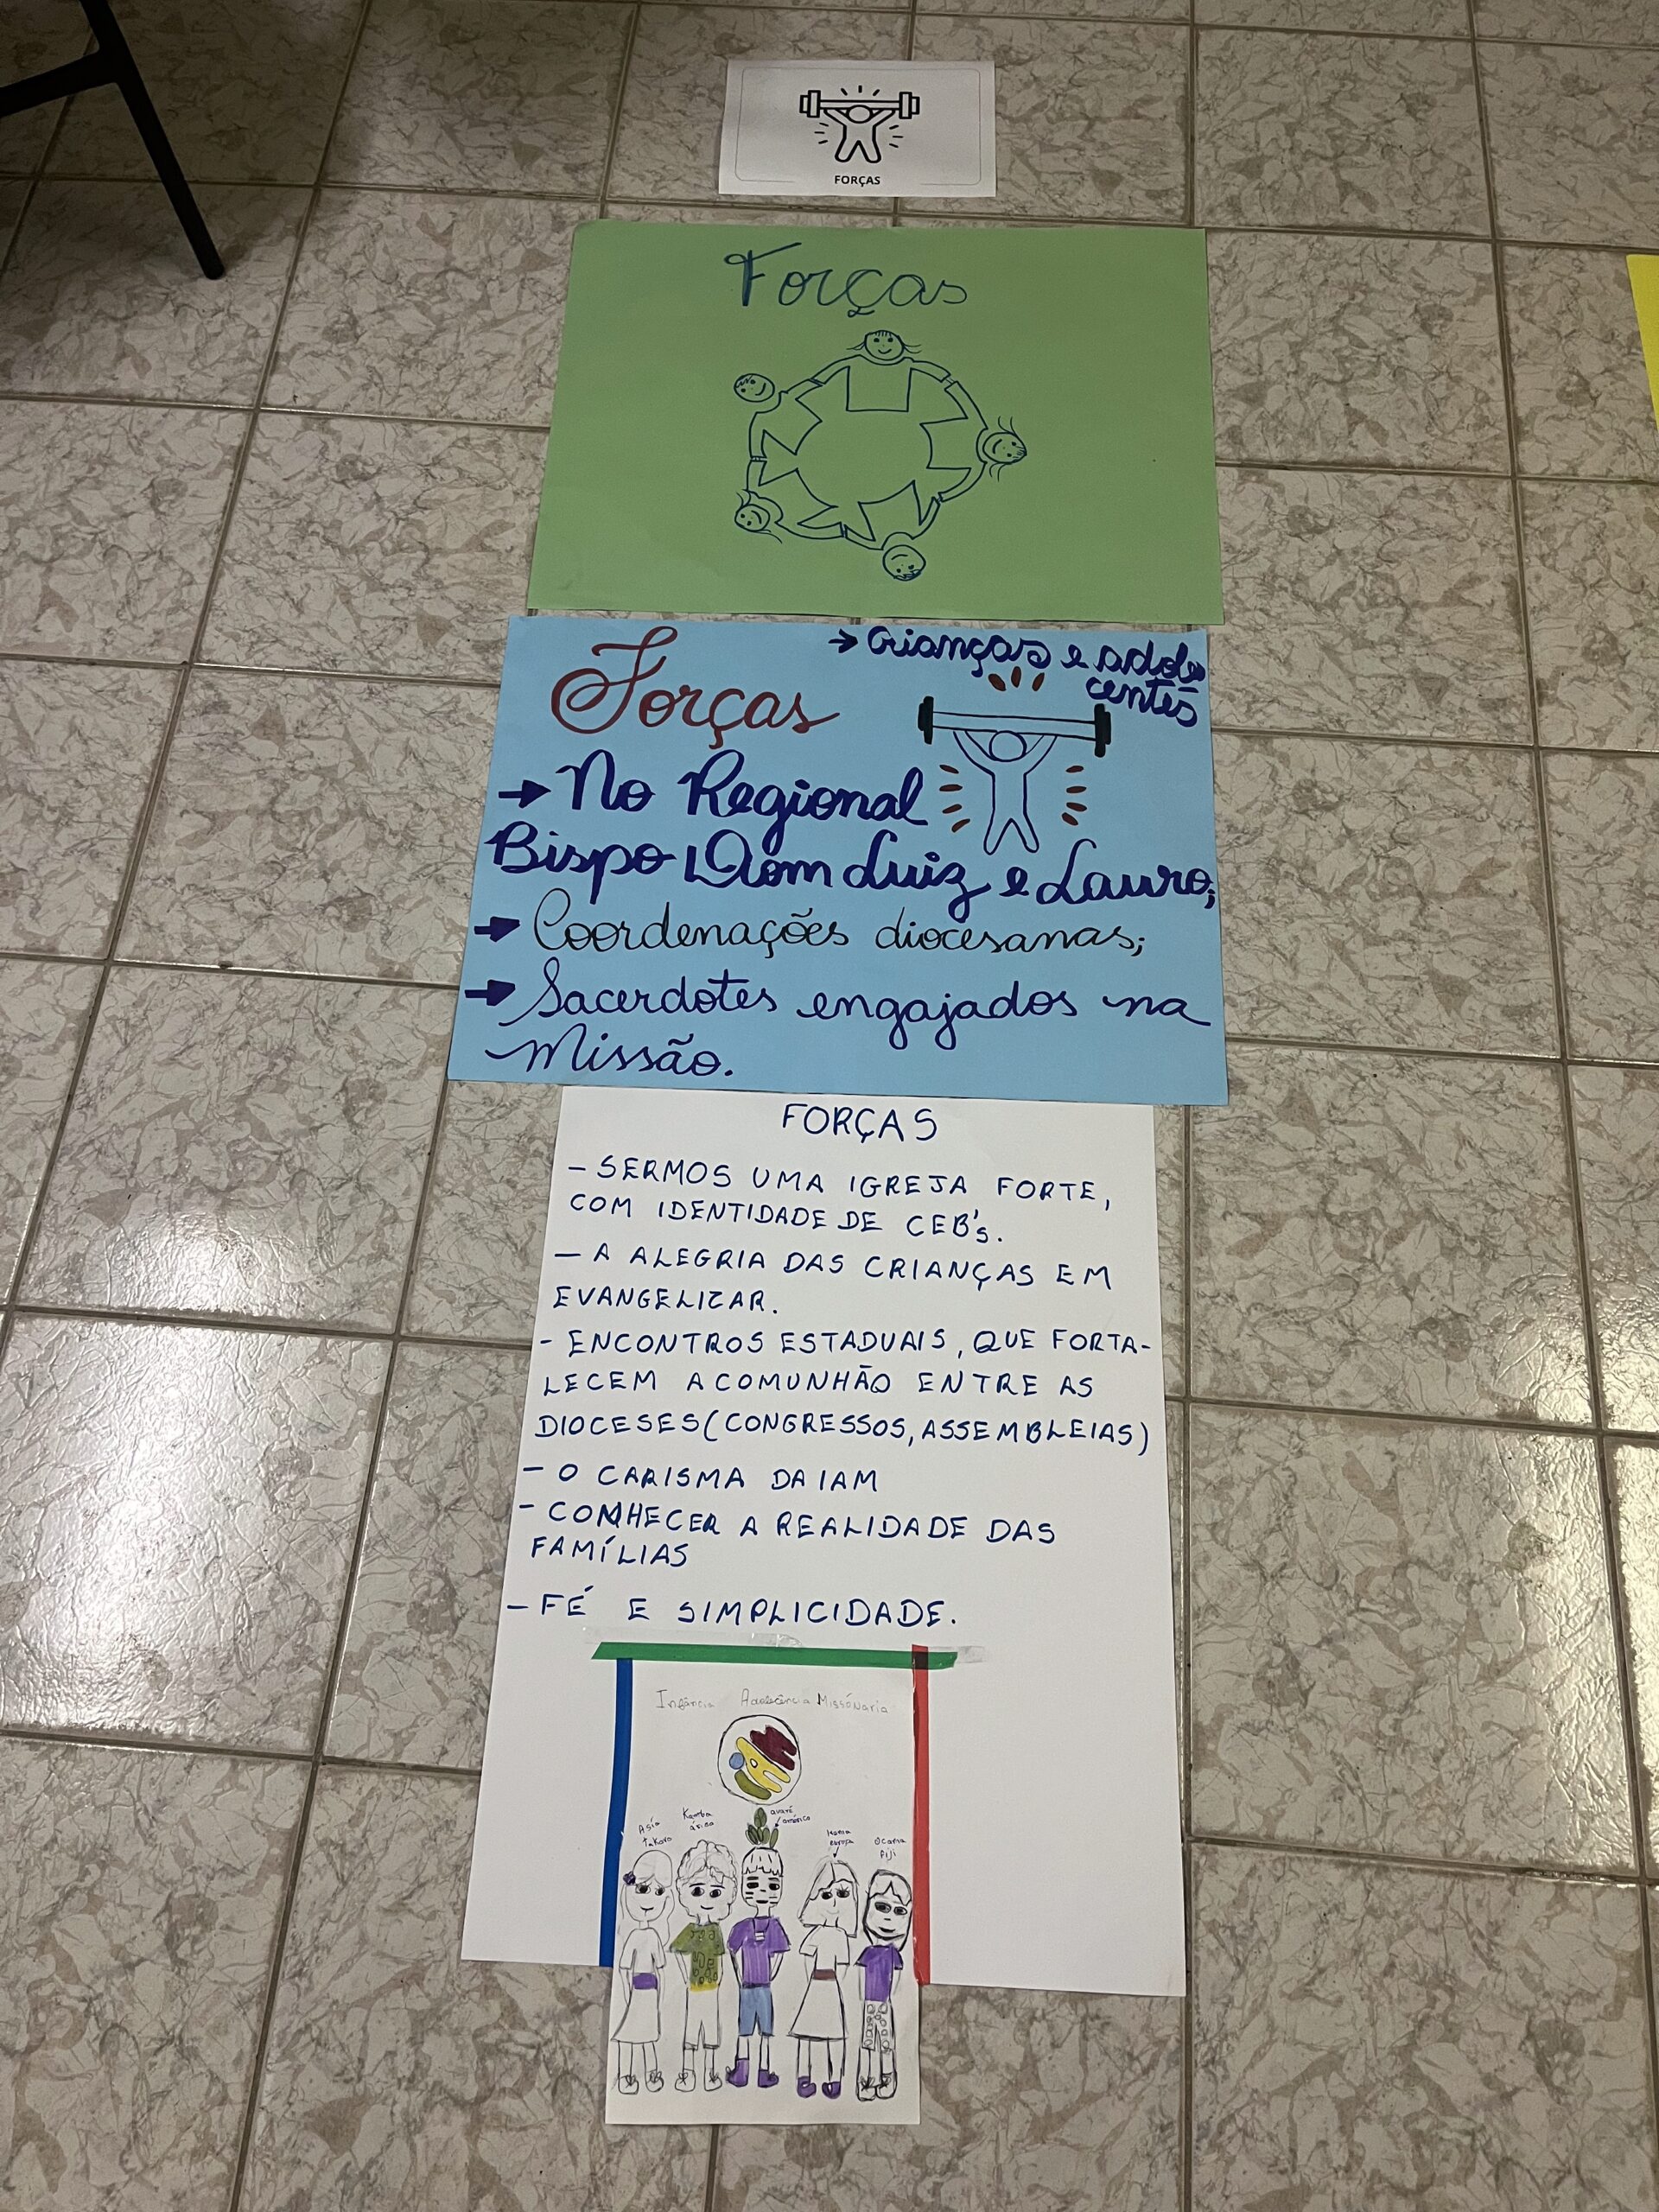 FORÇAS
Forças
Forças
→ Crianças e adoles
centes
→ No Regional
Bispo Dom Luiz e Lauro;
→ Coordenações diocesanas;
→ Sacerdotes engajados na
Missão.
FORÇAS
- SERMOS UMA IGREJA FORTE,
COM IDENTIDADE DE CEB's.
- A ALEGRIA DAS CRIANÇAS EM
EVANGELIZAR.
- ENCONTROS ESTADUAIS, QUE FORTA-
LECEM A COMUNHÃO ENTRE AS
DIOCESES (CONGRESSOS, ASSEMBLEIAS)
- O CARISMA DA IAM
- CONHECER A REALIDADE DAS
FAMÍLIAS
- FÉ E SIMPLICIDADE.
Infância Adolecência Missónaria
Asia